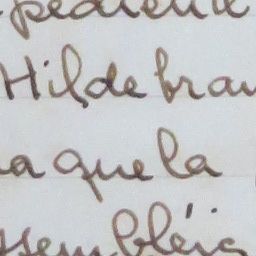 pediente
Hildebran
a que la
ssembléia